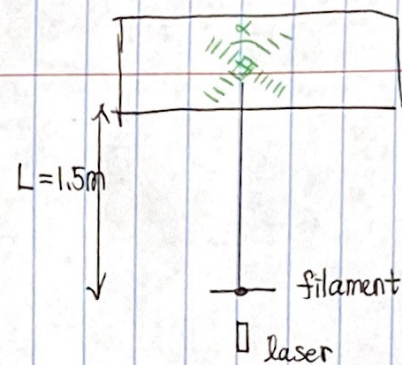 α
L = 1.5m
filament
laser